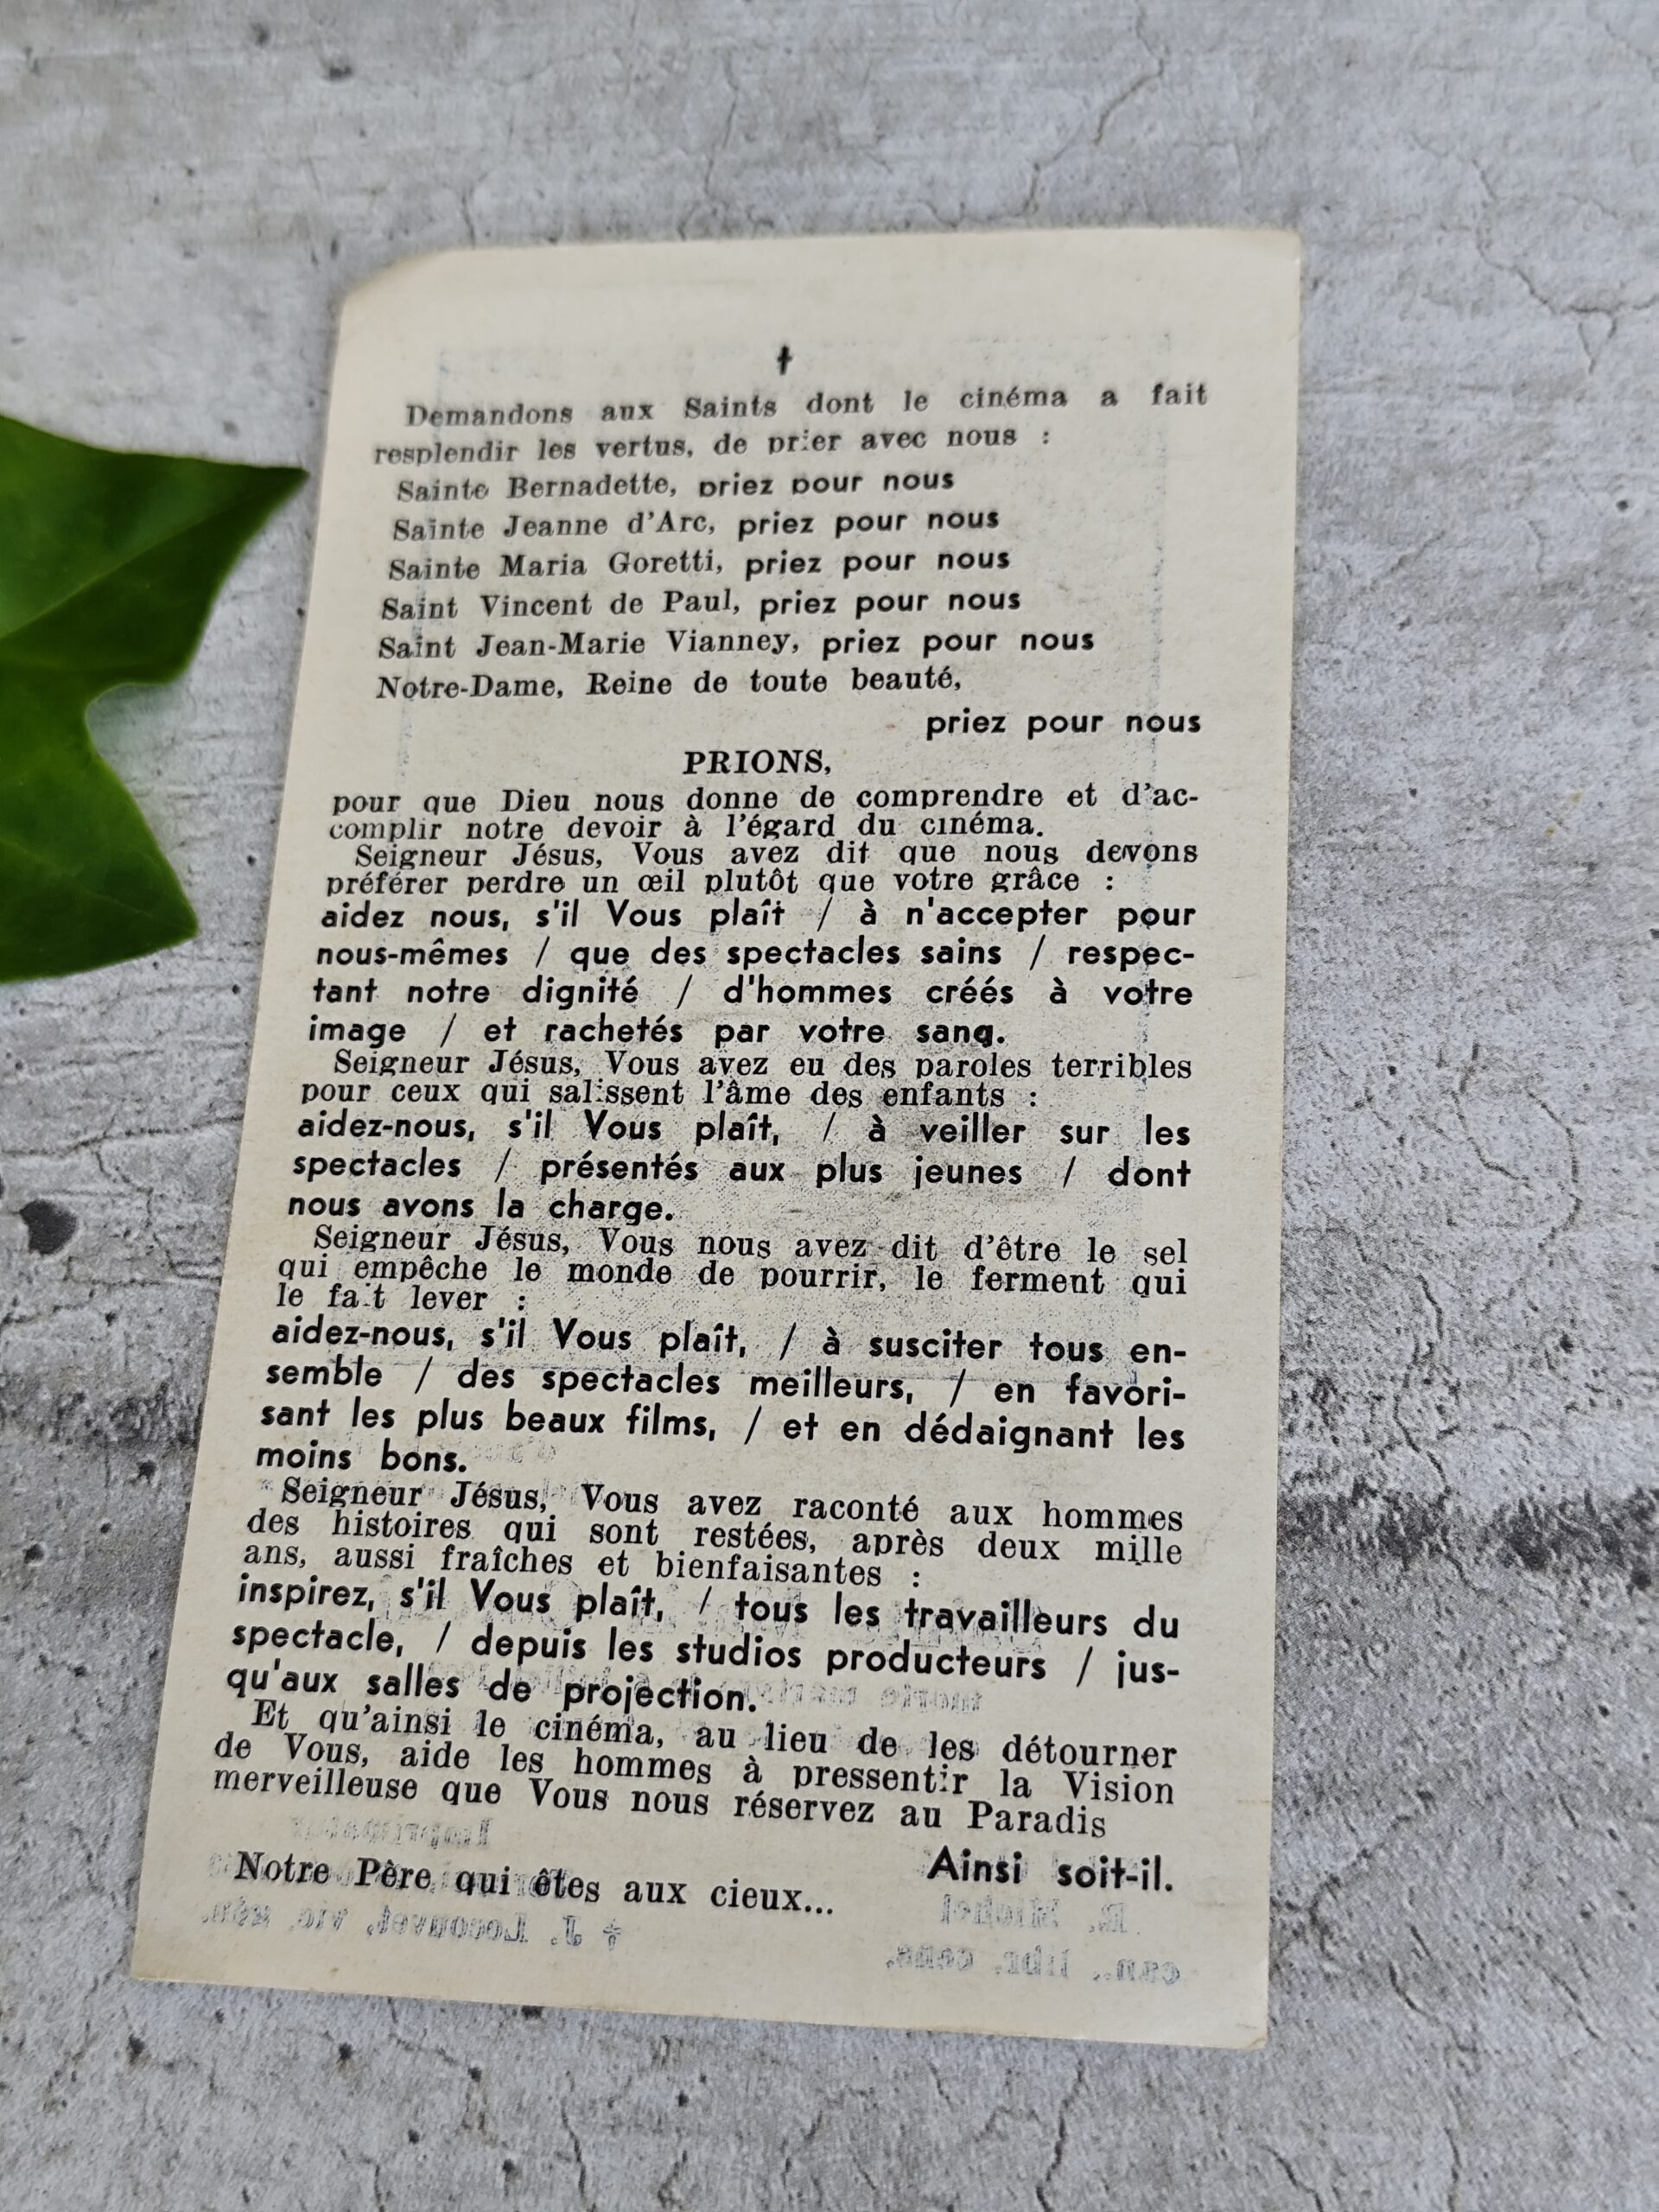 †
Demandons aux Saints dont le cinéma a fait
resplendir les vertus, de prier avec nous :
Sainte Bernadette, priez pour nous
Sainte Jeanne d'Arc, priez pour nous
Sainte Maria Goretti, priez pour nous
Saint Vincent de Paul, priez pour nous
Saint Jean-Marie Vianney, priez pour nous
Notre-Dame, Reine de toute beauté,
priez pour nous
PRIONS,
pour que Dieu nous donne de comprendre et d'ac-
complir notre devoir à l'égard du cinéma.
Seigneur Jésus, Vous avez dit que nous devons
préférer perdre un œil plutôt que votre grâce :
aidez nous, s'il Vous plaît / à n'accepter pour
nous-mêmes / que des spectacles sains / respec-
tant notre dignité / d'hommes créés à votre
image / et rachetés par votre sang.
Seigneur Jésus, Vous avez eu des paroles terribles
pour ceux qui salissent l'âme des enfants :
aidez-nous, s'il Vous plaît, / à veiller sur les
spectacles / présentés aux plus jeunes / dont
nous avons la charge.
Seigneur Jésus, Vous nous avez dit d'être le sel
qui empêche le monde de pourrir, le ferment qui
le fait lever :
aidez-nous, s'il Vous plaît, / à susciter tous en-
semble / des spectacles meilleurs, / en favori-
sant les plus beaux films, / et en dédaignant les
moins bons.
Seigneur Jésus, Vous avez raconté aux hommes
des histoires qui sont restées, après deux mille
ans, aussi fraîches et bienfaisantes :
inspirez, s'il Vous plaît, / tous les travailleurs du
spectacle, / depuis les studios producteurs / jus-
qu'aux salles de projection.
Et qu'ainsi le cinéma, au lieu de les détourner
de Vous, aide les hommes à pressentir la Vision
merveilleuse que Vous nous réservez au Paradis
Ainsi soit-il.
Notre Père qui êtes aux cieux...
R. Michel
† J. Lecouvet, vic. gén.
can., libr. cens.